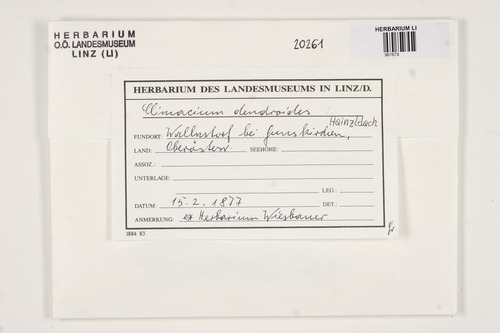 HERBARIUM
O.Ö. LANDESMUSEUM
LINZ (LI)
20261
HERBARIUM LI
HERBARIUM DES LANDESMUSEUMS IN LINZ/D.
Climacium dendroides
Hainzlbach
FUNDORT: bei Gunskirchen,
LAND: Oberösterr. SEEHÖHE:
ASSOZ.:
UNTERLAGE:
LEG:
DATUM: 15.2.1877 DET:
ANMERKUNG: ex Herbarium Wiesbauer
1884 83